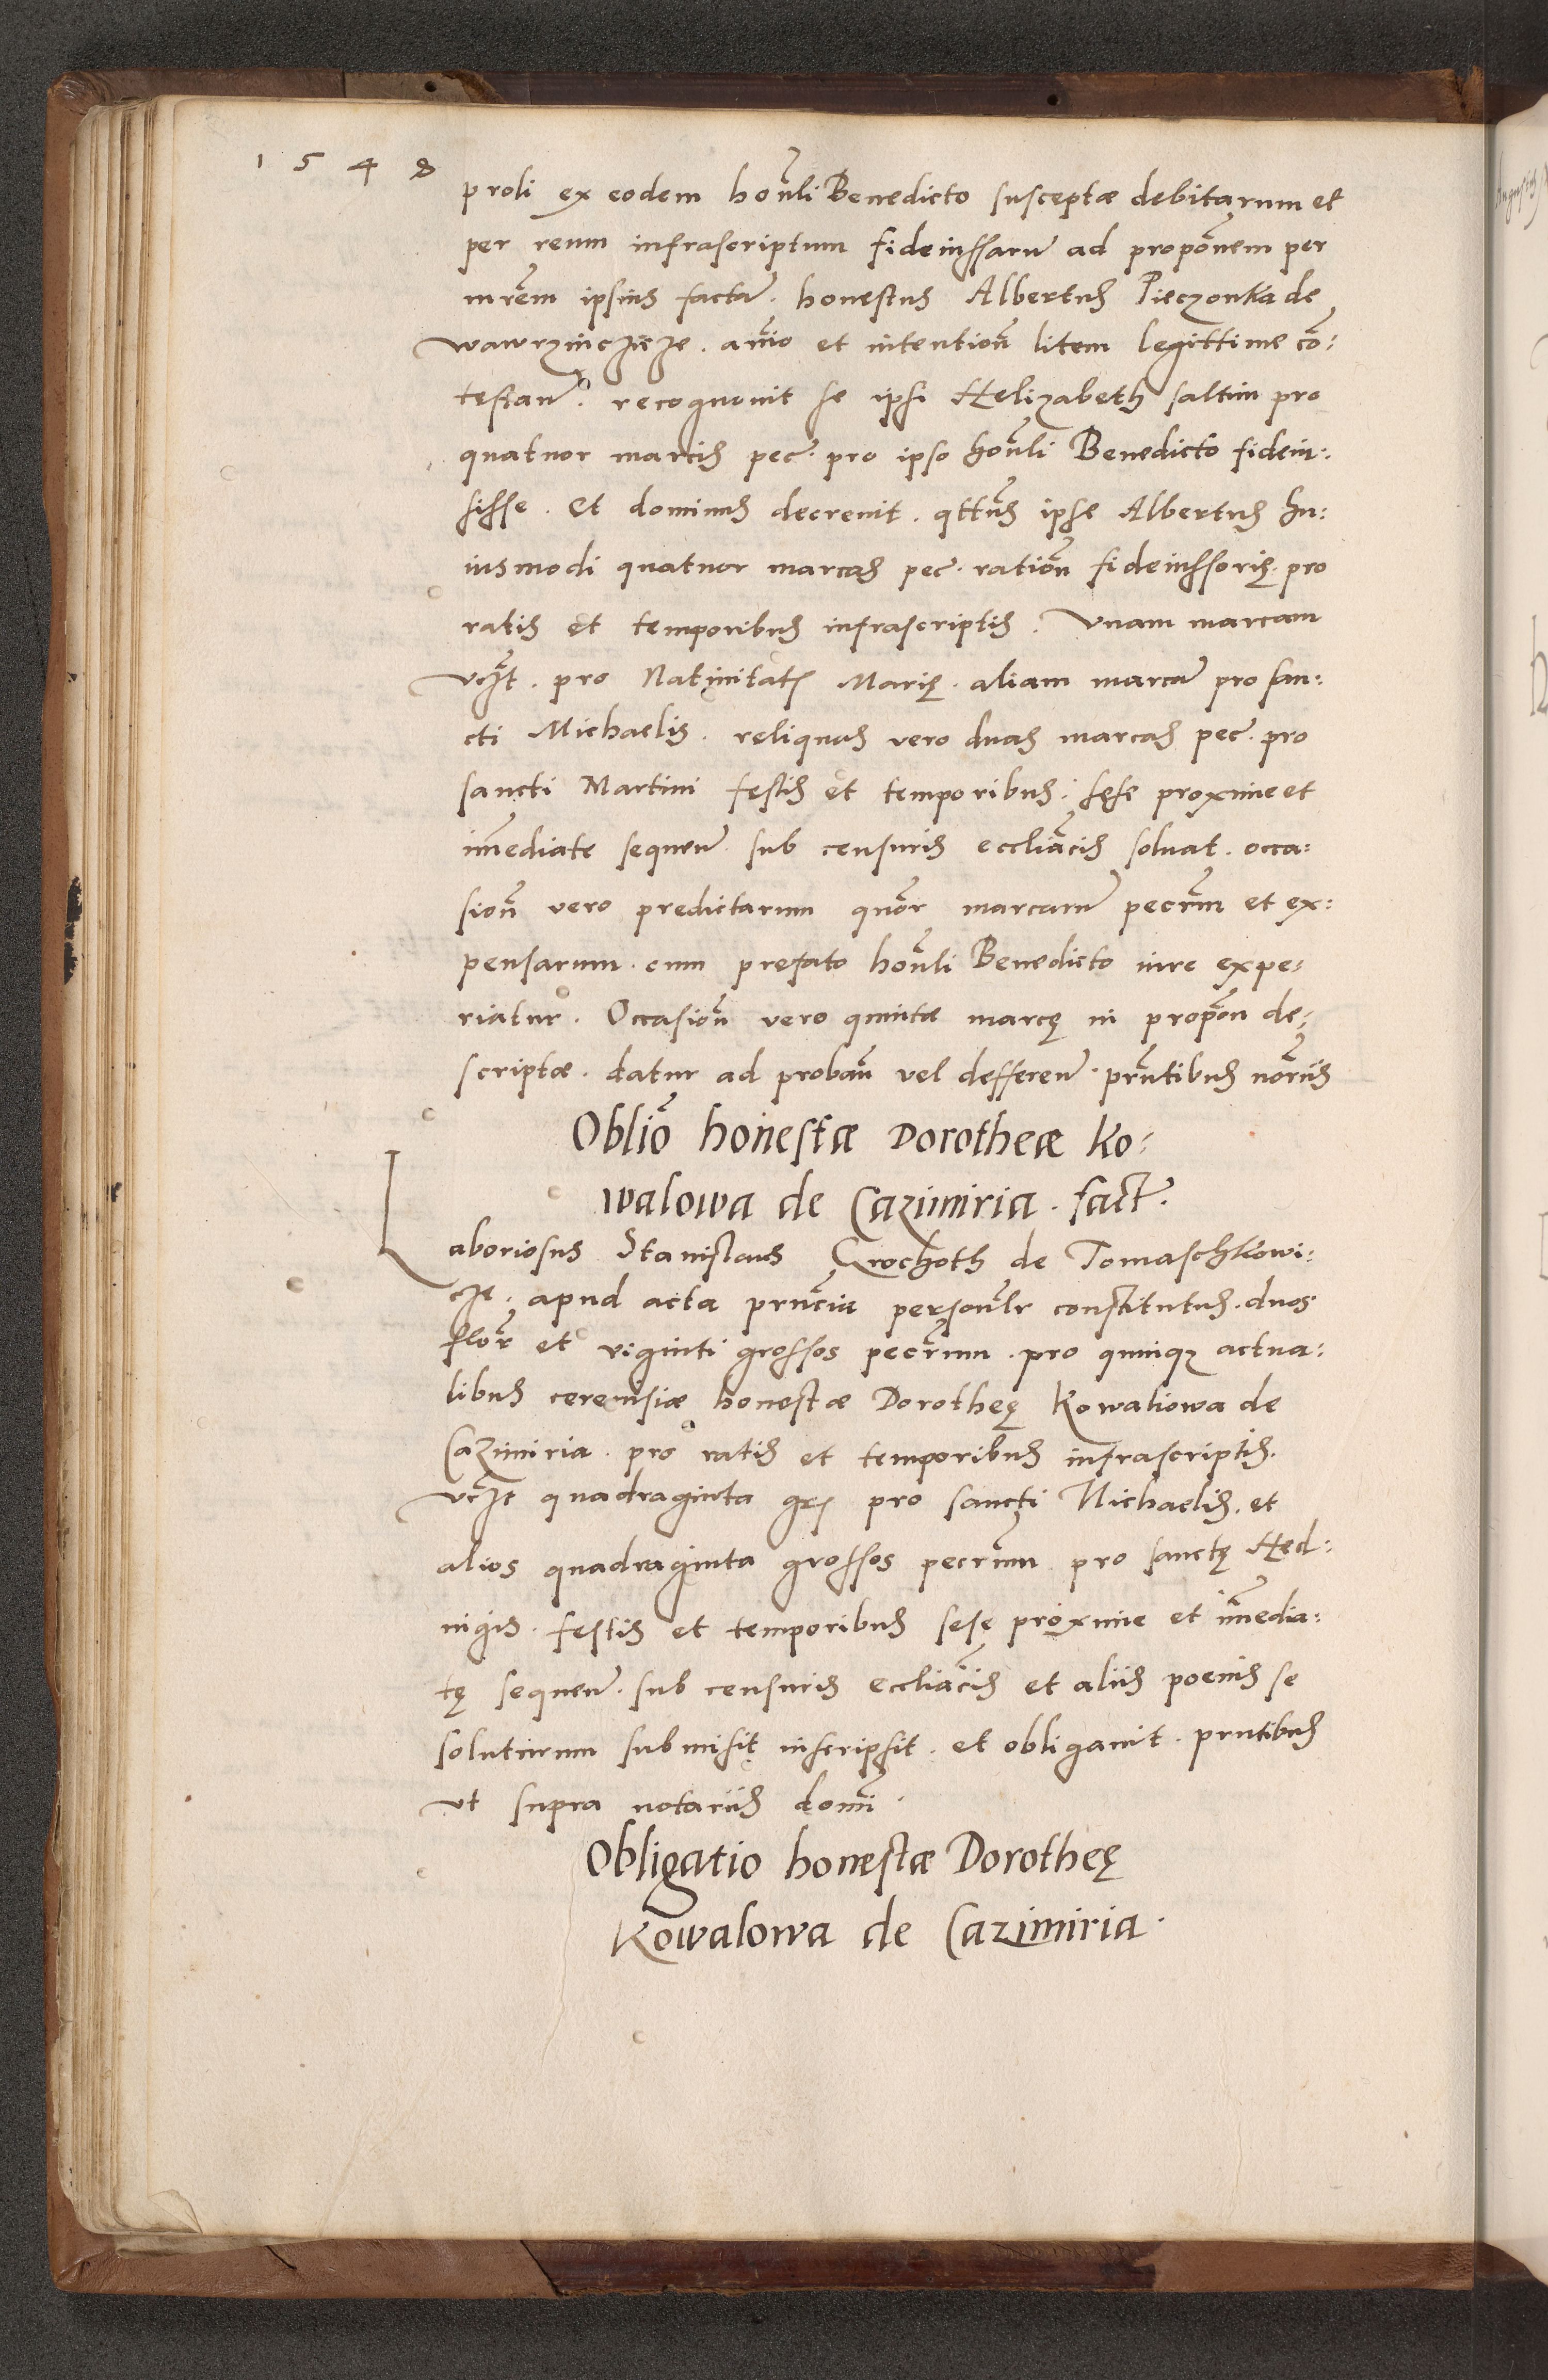 1 5 4 8
proli ex eodem hon̄li Benedicto susceptæ debitarum et
per reum infrascriptum fideiussaru͂ ad propōnem per
mrēm ipsius facta͂. honestus Albertus Pieczonka de
Wawrzinczicze. anīo et intention̄ litem legittime cō:
testan͂. recognouit se ipsi Helizabeth saltim pro
quatuor marcis pec. pro ipso hon̄li Benedicto fideiu:
sisse. Et dominus decreuit. qttūs ipse Albertus hu:
iusmodi quatuor marcas pec. ration̄ fideiussorię. pro
ratis et temporibus infrascriptis. Vnam marcam
vcz̄t. pro Natiuitatis Marię. aliam marca͂ pro san:
cti Michaelis. reliquas vero duas marcas pec. pro
sancti Martini festis et temporibus. sese proxime et
im̄ediate sequen͂ sub censuris eccliācis soluat. occa:
sion̄ vero predictarum quōr marcaru͂ pecrūm et ex:
pensarum. cum prefato hon̄li Benedicto iure expe:
riatur. Occasion̄ vero quintæ marcę in propōn de:
scriptæ. datur ad proban̄ vel defferen͂. prn̄tibus nōriis
Obliō honestæ Dorotheæ Ko:
walowa de Cazimiria. fact͂.
Laboriosus Stanislaus Grochoth de Tomaschkowi:
cze. apud acta prn̄cia personl̄r constitutus. duos
flōr et viginti grossos pecrūm. pro quinq₃ actua:
libus cereuisiæ honestæ Dorotheę Kowaliowa de
Cazimiria. pro ratis et temporibus infrascriptis.
vcz̄t quadraginta grs pro sancti Michaelis. et
alios quadraginta grossos pecrūm pro sanctę Hed:
uigis. festis et temporibus sese proxime et im̄edia:
tę sequen͂. sub censuris eccliācis et aliis poenis se
soluturum submisit inscripsit. et obligauit. prntibus
vt supra notariis domī.
Obligatio honestæ Dorotheę
Kowalowa de Cazimiria.